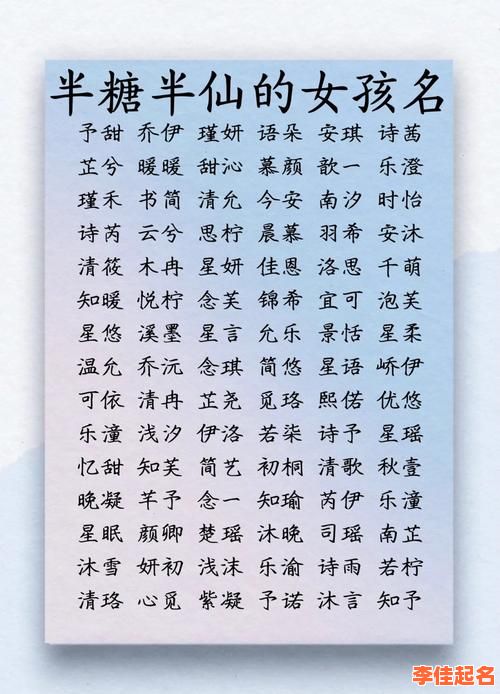 半糖半仙的女孩名
予甜 乔伊 瑾妍 语朵 安琪 诗茜
芷兮 暖暖 甜沁 慕颜 歆一 乐澄
瑾禾 书简 清允 今安 南汐 时怡
诗芮 云兮 思柠 晨慕 羽希 安沐
清筱 木冉 星妍 佳恩 洛思 千萌
知暖 悦柠 念芙 锦希 宜可 泡芙
星悠 溪墨 星言 允乐 景恬 星柔
温允 乔沅 念琪 简悠 星语 峤伊
可依 清冉 芷尧 觅珞 熙偌 优悠
乐潼 浅汐 伊洛 若柒 诗予 星瑶
忆甜 知芙 简艺 初桐 清歌 秋壹
晚凝 芊予 念一 知瑜 芮伊 乐潼
星眠 颜卿 楚瑶 沐晚 司瑶 南芷
沐雪 妍初 浅沫 乐渝 诗雨 若柠
清珞 心觅 紫凝 予诺 沐言 知予
李佳起名